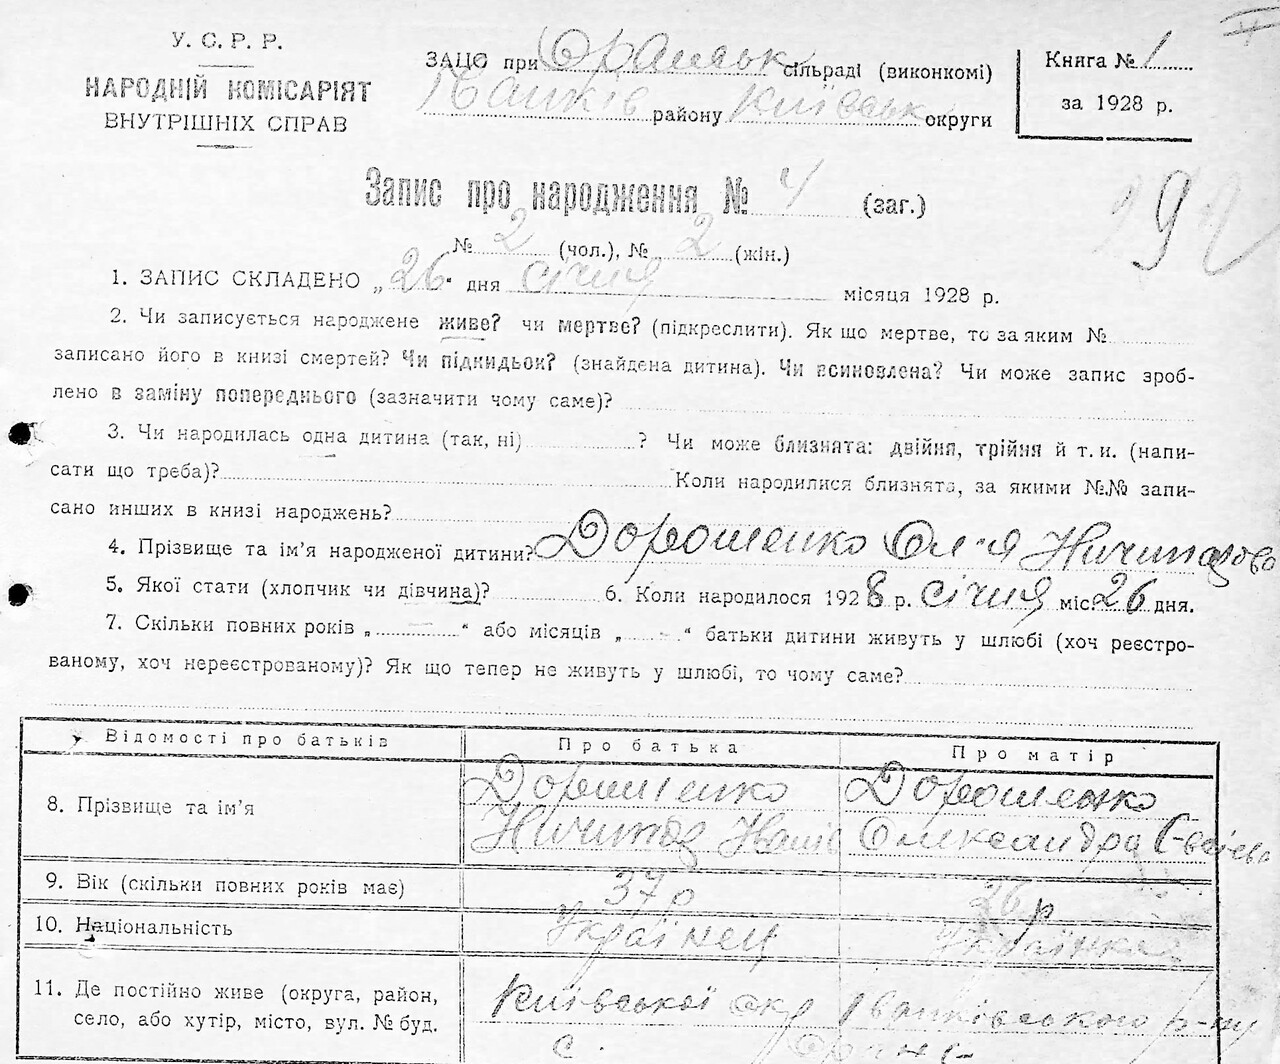 У. С. Р. Р.
НАРОДНІЙ КОМІСАРІЯТ
ВНУТРІШНІХ СПРАВ
ЗАЦС при сільраді (виконкомі)
Іванків району Київськ округи
Книга № 1
за 1928 р.
Запис про народження № 4 (заг.)
№ 2 (чол.), № 2 (жін.)
1. ЗАПИС СКЛАДЕНО „26“ дня січня місяця 1928 р.
2. Чи записується народжене живе? чи мертве? (підкреслити). Як що мертве, то за яким №
записано його в книзі смертей? Чи підкидьок? (знайдена дитина). Чи всиновлена? Чи може запис зроб-
лено в заміну попереднього (зазначити чому саме)?
3. Чи народилась одна дитина (так, ні) ? Чи може близнята: двійня, трійня й т. и. (напи-
сати що треба)? Коли народилися близнята, за якими №№ запи-
сано инших в книзі народжень?
4. Прізвище та ім’я народженої дитини? Дорошенко Ольга
5. Якої стати (хлопчик чи дівчина)? 6. Коли народилось 1928 р. січня міс. 26 дня.
7. Скільки повних років „ “ або місяців „ “ батьки дитини живуть у шлюбі (хоч реєстро-
ваному, хоч нереєстрованому)? Як що тепер не живуть у шлюбі, то чому саме?
Відомості про батьків Про батька Про матір
8. Прізвище та ім’я Дорошенко Дорошенко
Ничипор Іванів Олександра
9. Вік (скільки повних років має) 37 р 26 р
10. Національність Українец Українка
11. Де постійно живе (округа, район, Київської окр Іванківського р-ну
село, або хутір, місто, вул. № буд. с.